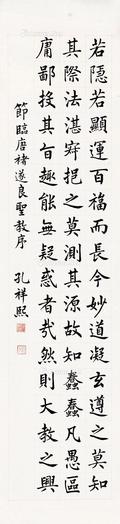 若隱若顯運百福而長今妙道凝玄遵之莫知
其際法湛寂挹之莫測其源故知蠢蠢凡愚區
庸鄙投其旨趣能無疑惑者哉然則大教之興
節臨唐褚遂良聖教序
孔祥熙